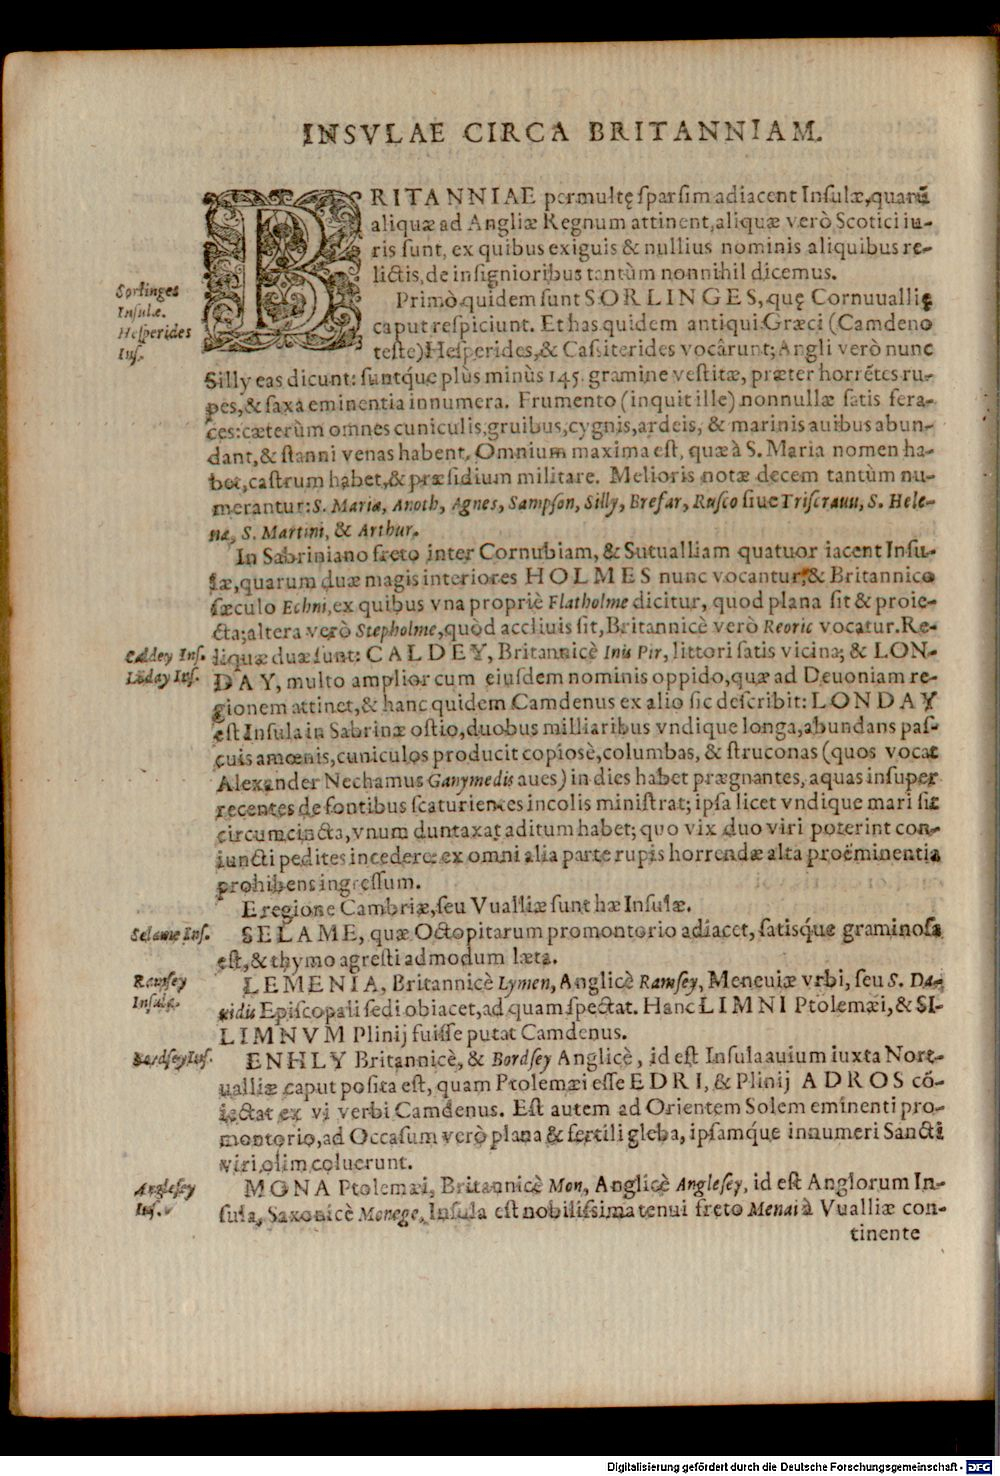 INSVLAE CIRCA BRITANNIAM.
BRITANNIAE permultę sparsim adiacent Insulæ, quarũ
aliquæ ad Angliæ Regnum attinent, aliquæ verò Scotici iu-
ris sunt, ex quibus exiguis & nullius nominis aliquibus re-
lictis, de insignioribus tantùm nonnihil dicemus.
Sorlinges
Insulæ.
Hesperides
Ins.
Primò quidem sunt SORLINGES, quę Cornuuallię
caput respiciunt. Et has quidem antiqui Græci (Camdeno
teste) Hesperides, & Cassiterides vocârunt; Angli verò nunc
Silly eas dicunt: suntq́ue plùs minùs 145. gramine vestitæ, præter horrẽtes ru-
pes, & saxa eminentia innumera. Frumento (inquit ille) nonnullæ satis fera-
ces: cæterùm omnes cuniculis, gruibus, cygnis, ardeis, & marinis auibus abun-
dant, & stanni venas habent. Omnium maxima est, quæ à S. Maria nomen ha-
bet, castrum habet, & præsidium militare. Melioris notæ decem tantùm nu-
merantur: S. Maria, Anoth, Agnes, Sampson, Silly, Brefar, Rusco siue Triscraw, S. Hele-
na, S. Martini, & Arthur.
In Sabriniano freto inter Cornubiam, & Sutualliam quatuor iacent Insu-
læ, quarum duæ magis interiores HOLMES nunc vocantur, & Britannico
sæculo Echni, ex quibus vna propriè Flatholme dicitur, quod plana sit & proie-
cta; altera verò Stepholme, quòd accliuis sit, Britannicè verò Reoric vocatur. Re-
Caldey Ins.
liquæ duæ sunt: CALDEY, Britannicè Inis Pir, littori satis vicina; & LON-
Lõday Ins.
DAY, multo amplior cum eiusdem nominis oppido, quæ ad Deuoniam re-
gionem attinet, & hanc quidem Camdenus ex alio sic describit: LONDAY
est Insula in Sabrinæ ostio, duobus milliaribus vndique longa, abundans pas-
cuis amœnis, cuniculos producit copiosè, columbas, & struconas (quos vocat
Alexander Nechamus Ganymedis aues) in dies habet prægnantes, aquas insuper
recentes de fontibus scaturientes incolis ministrat; ipsa licet vndique mari sit
circumcincta, vnum duntaxat aditum habet; quo vix duo viri poterint con-
iuncti pedites incedere: ex omni alia parte rupis horrendæ alta proëminentia
prohibens ingressum.
E regione Cambriæ, seu Vualliæ sunt hæ Insulæ.
Selame Ins.
SELAME, quæ Octopitarum promontorio adiacet, satisq́ue graminosa
est, & thymo agresti admodum læta.
Ramsey
Insula.
LEMENIA, Britannicè Lymen, Anglicè Ramsey, Meneuiæ vrbi, seu S. Da-
uidis Episcopali sedi obiacet, ad quam spectat. Hanc LIMNI Ptolemæi, & SI-
LIMNVM Plinij fuisse putat Camdenus.
Bardsey Ins.
ENHLY Britannicè, & Bordsey Anglicè, id est Insula auium iuxta Nort-
ualliæ caput posita est, quam Ptolemæi esse EDRI, & Plinij ADROS cõ-
iectat ex vi verbi Camdenus. Est autem ad Orientem Solem eminenti pro-
montorio, ad Occasum verò plana & fertili gleba, ipsamq́ue innumeri Sancti
viri olim coluerunt.
Anglesey
Ins.
MONA Ptolemæi, Britannicè Mon, Anglicè Anglesey, id est Anglorum In-
sula, Saxonicè Monege, Insula est nobilissima tenui freto Menai à Vualliæ con-
tinente
Digitalisierung gefördert durch die Deutsche Forschungsgemeinschaft - DFG